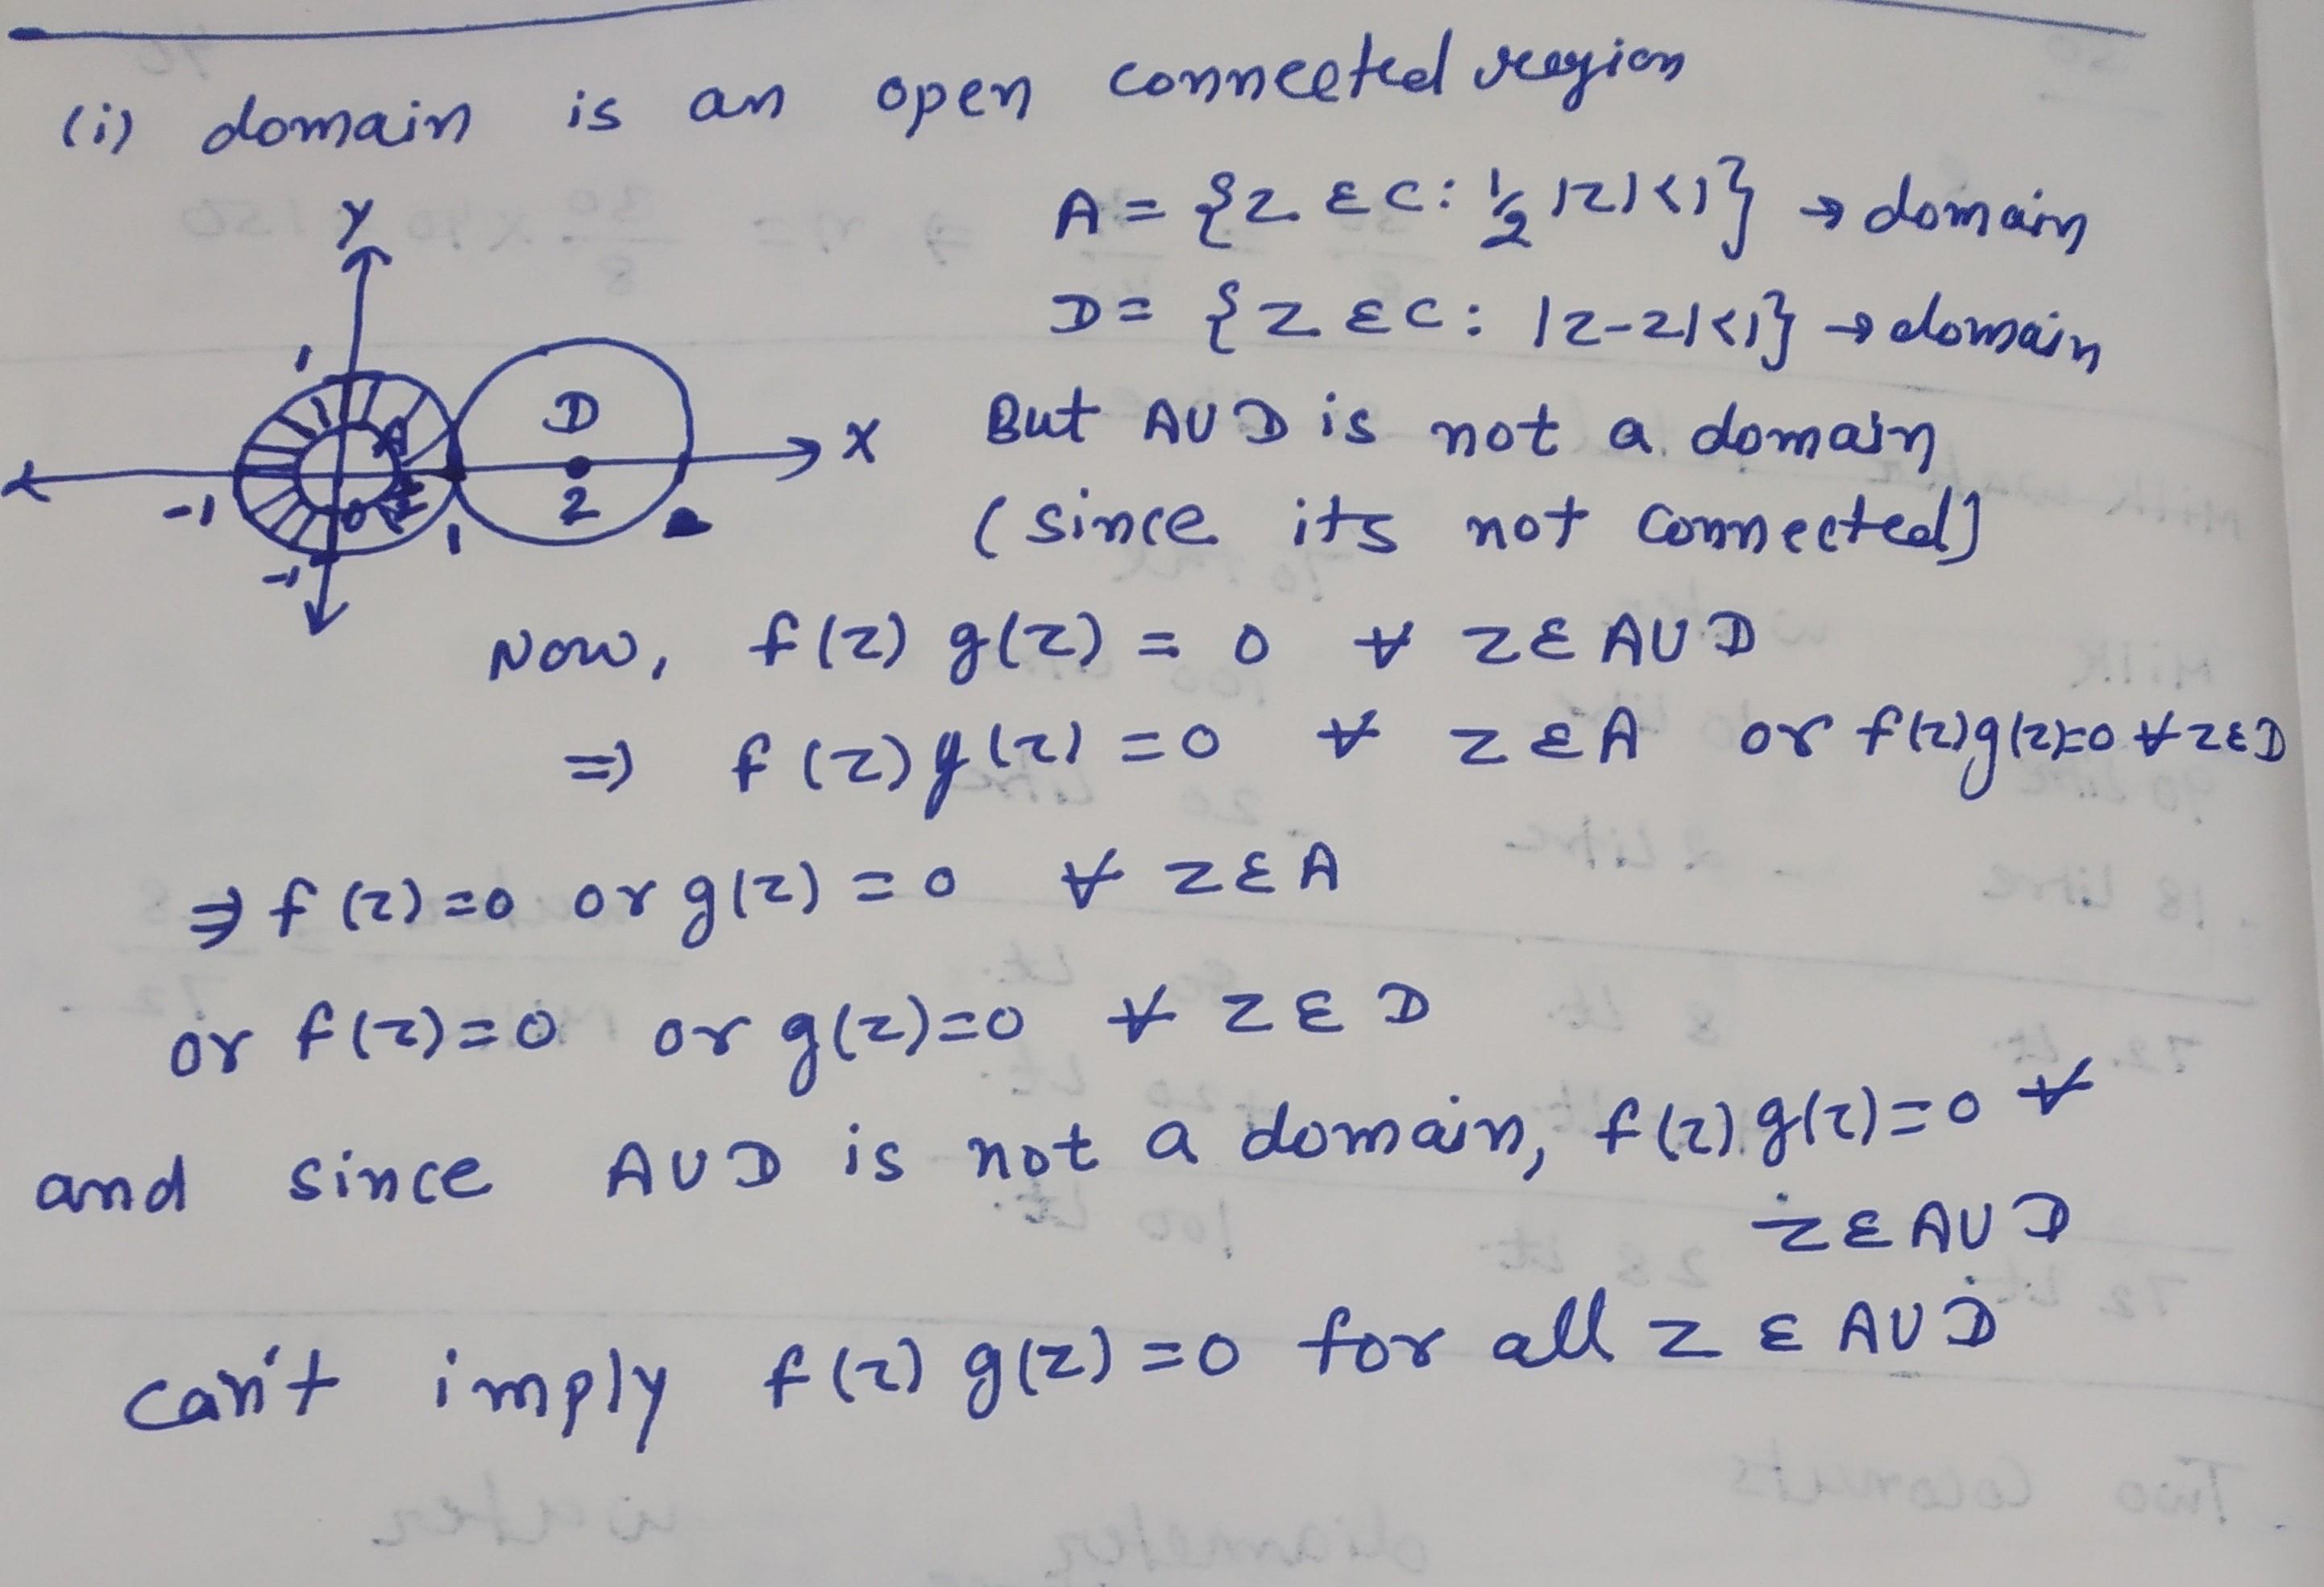 (i) domain is an open connected region
A = {z ε C: 1/2 |z| < 1} → domain
D = {z ε C: |z-2| < 1} → domain
But A∪D is not a domain
(since its not connected)
Y
X
1
-1
-1
1
D
2
A
0
Now, f(z) g(z) = 0 ∀ z ε A∪D
⇒ f(z) g(z) = 0 ∀ z ε A or f(z)g(z)=0 ∀ z ε D
⇒ f(z) = 0 or g(z) = 0 ∀ z ε A
or f(z) = 0 or g(z) = 0 ∀ z ε D
and since A∪D is not a domain, f(z) g(z) = 0 ∀
z ε A∪D
can't imply f(z) g(z) = 0 for all z ε A∪D